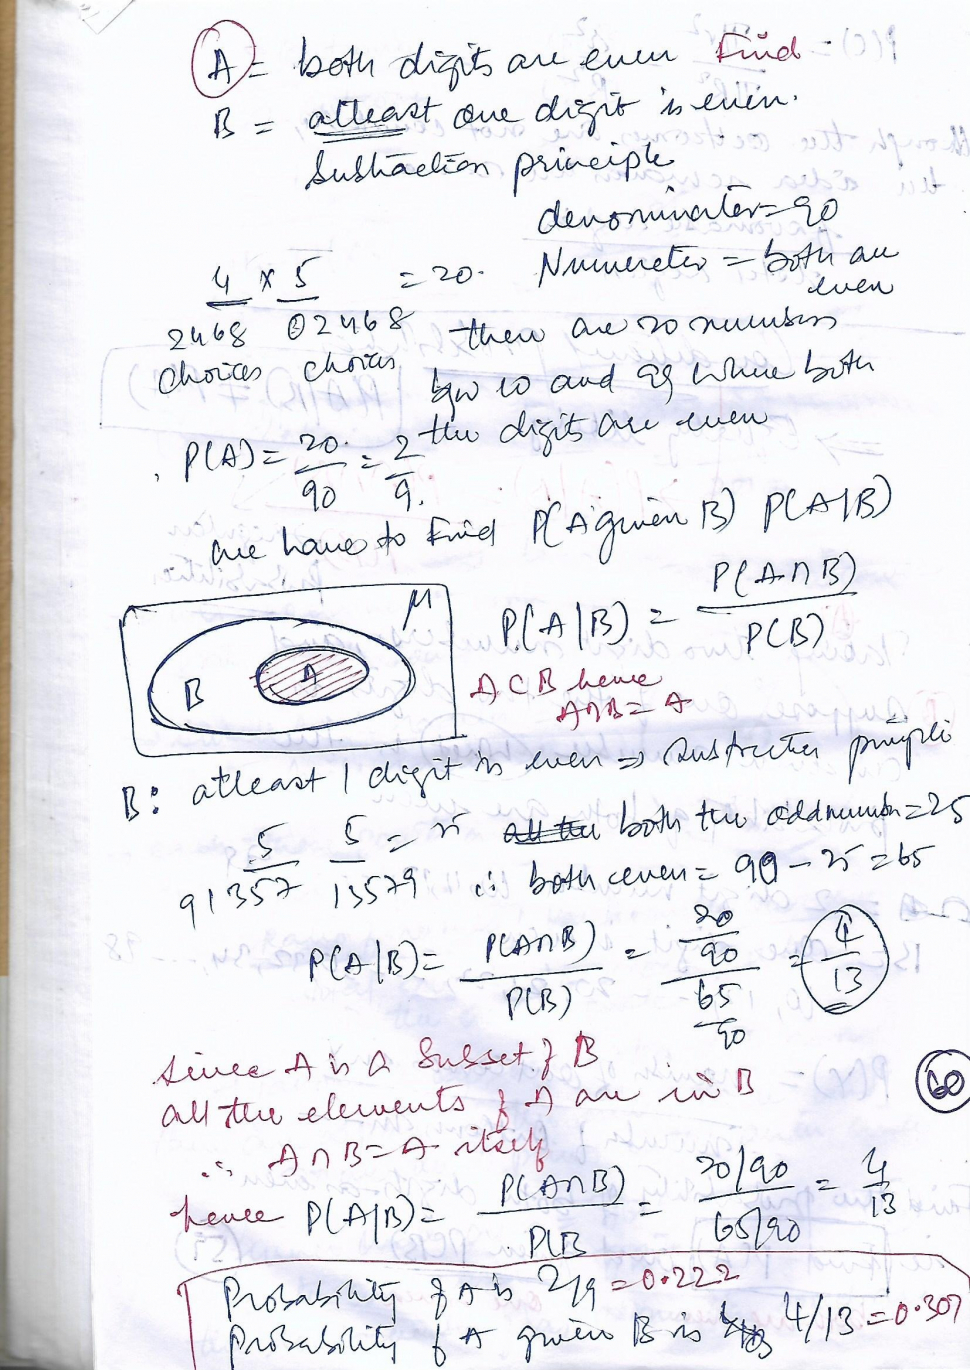 A = both digits are even Find
B = atleast one digit is even.
Subtraction principle
denominator = 90
4 × 5 = 20. Numerator = both are
even
2468 02468 there are 20 numbers
choices choices b/w 10 and 99 where both
the digits are even
P(A) = 20/90 = 2/9.
we have to find P(A given B) P(A|B)
P(A|B) = P(A∩B)/P(B)
μ
B A
A ⊂ B hence
A∩B = A
B: atleast 1 digit is even ⇒ subtraction principle
5 5 = 25 both the odd number = 25
91357 13579 ∴ both even = 90 - 25 = 65
P(A|B) = P(A∩B)/P(B) = 20/90 / 65/90 = 4/13
Since A is a Subset of B
all the elements of A are in B
60
∴ A∩B = A itself
hence P(A|B) = P(A∩B)/P(B = 20/90 / 65/90 = 4/13
Probability of A is 2/9 = 0.222
Probability of A given B is 4/13 = 0.307